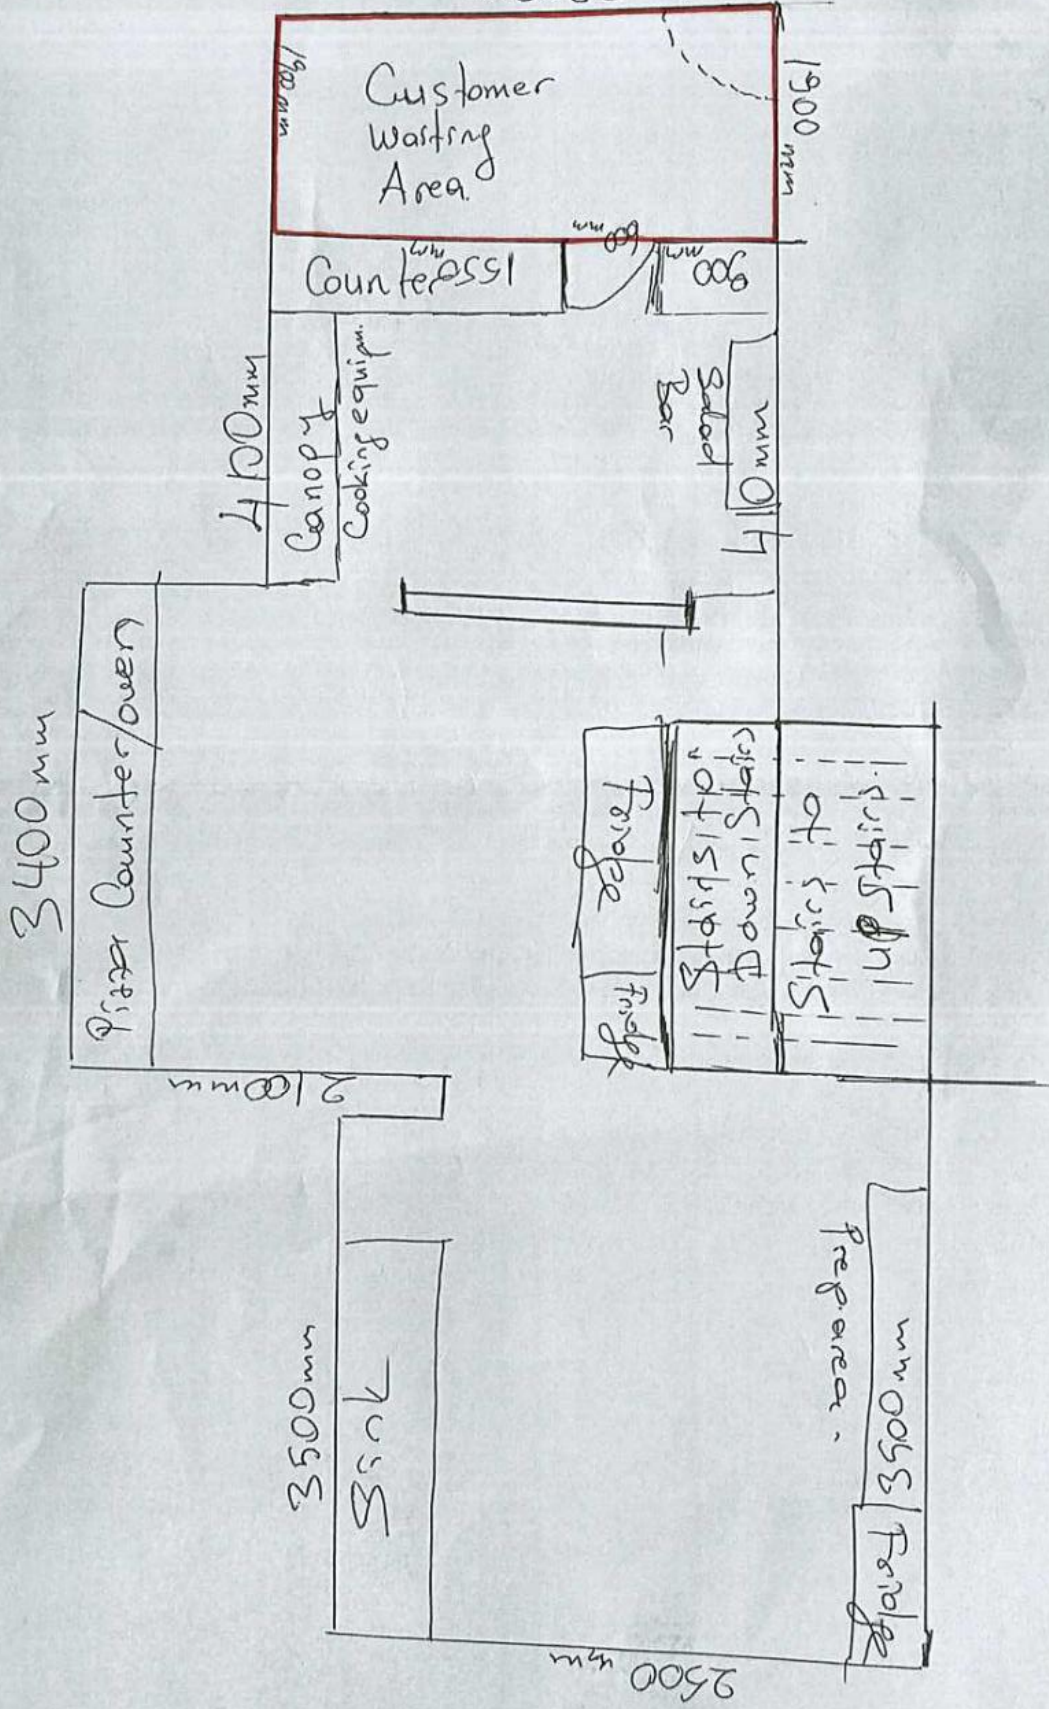 1900 mm
1900 mm
Customer
Waiting
Area.
Counter
1550 mm
600 mm
900 mm
4100mm
Canopy
Cooking equipm.
Salad
Bar
4110mm
3400mm
Pizza Counter/oven
Fridge
Fridge
Stairs to
Down Stairs
Stairs to
upstairs.
2100mm
3500mm
Sink
Prep. area.
3500mm
Fridge
2500 mm